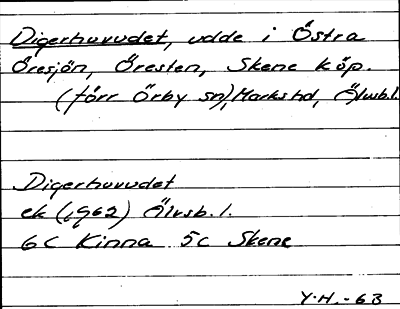 Digerhuvudet, udde i Östra
Öresjön, Öresten, Skene köp.
(förr Örby sn), Marks hd, Älvsb.l.
Digerhuvudet
ek (1962) Älvsb.l.
6c Kinna 5c Skene
Y.H.-63